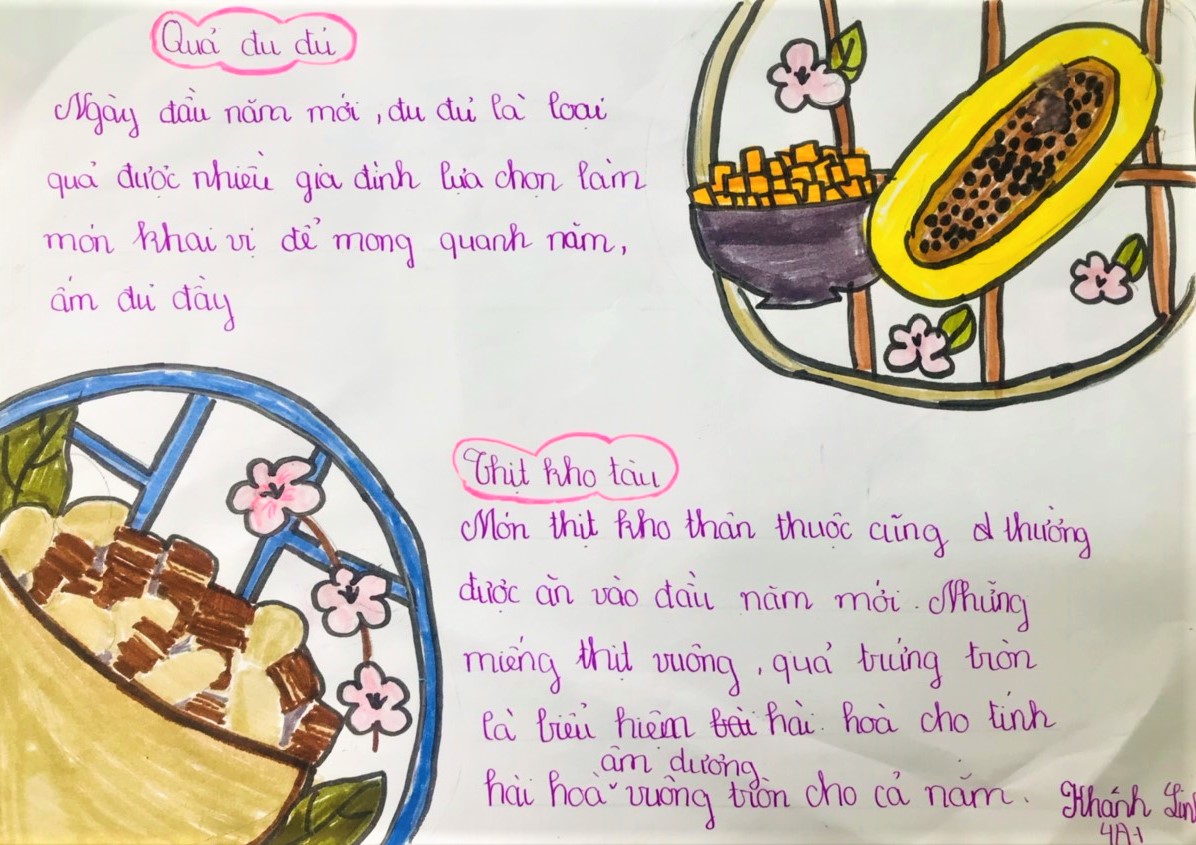 Quả đu đủ
Ngày đầu năm mới, đu đủ là loại
quả được nhiều gia đình lựa chọn làm
món khai vị để mong quanh năm,
ấm đủ đầy
Thịt kho tàu
Món thịt kho thân thuộc cũng thường
được ăn vào đầu năm mới. Những
miếng thịt vuông, quả trứng tròn
là biểu hiện hài hoà cho tính
âm dương
hài hoà vuông tròn cho cả năm.
Khánh Lin
4A1